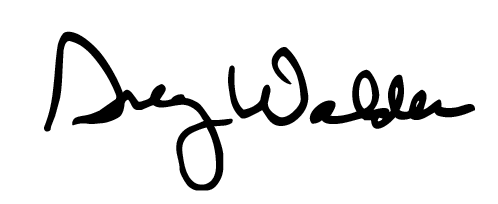 Greg Walden